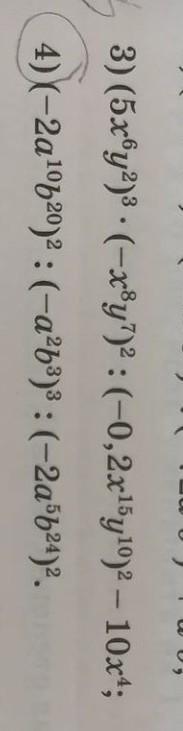 3) (5x⁶y²)³ · (−x⁸y⁷)² : (−0,2x¹⁵y¹⁰)² − 10x⁴;
4) (−2a¹⁰b²⁰)² : (−a²b³)³ : (−2a⁵b²⁴)².